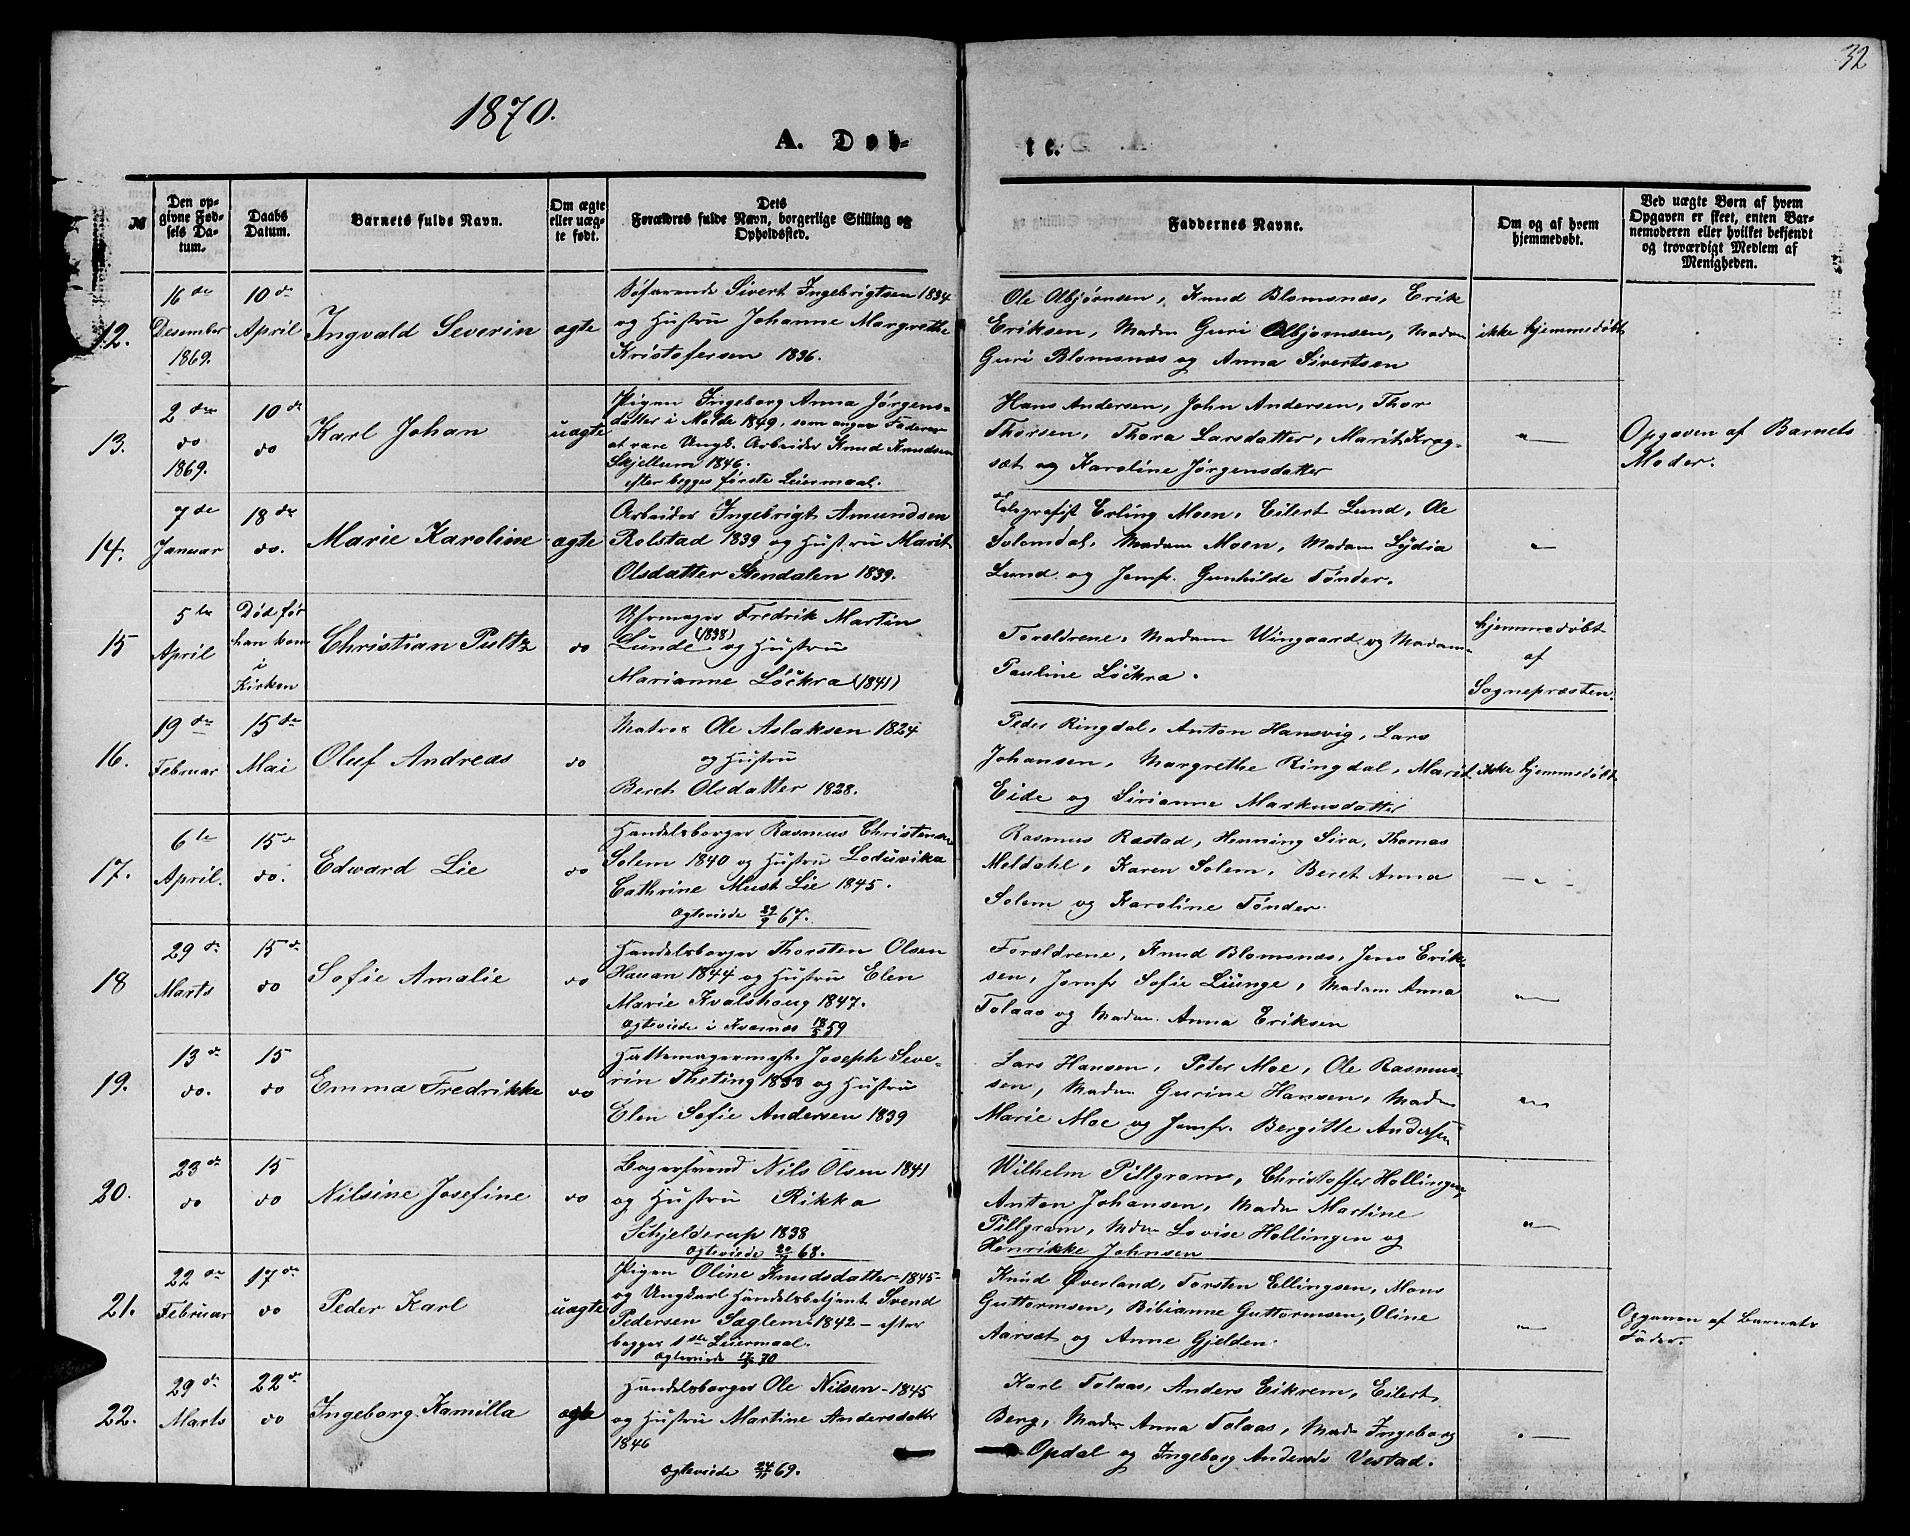 32
1870.
A. Døb-
te.
№
Den op-
givne Fød-
sels Da-
tum.
Daabs
Datum.
Barnets fulde Navn.
Om ægte
eller uæg-
te født.
Dets
Forældres fulde Navn, borgerlige Stilling og
Opholdssted.
Faddernes Navne.
Om og af hvem
hjemmedøbt.
Ved uægte Børn af hvem
Opgaven er skeet, enten Bar-
nemoderen eller hvilket bekjendt
og troværdigt Medlem af
Menigheden.
12.
16 de
Desember
1869.
10 de
April
Ingvald Severin
ægte
Søfarende Sivert Ingebrigtsen 1834
og Hustru Johanne Margrethe
Kristofersen 1836.
Ole Abjørnsen, Knud Blomsnæs, Erik
Eriksen, Madm Guri Abjørnsen, Madm
Guri Blomsnæs og Anna Sivertsen
ikke hjemmedøbt
13.
2 den
do
1869.
10 de
do
Karl Johan
uægte
Pigen Ingeborg Anna Jørgens-
datter i Molde 1849, som angav Faderen
at være Ungk. Arbeider Knud Knudsen
Skjellum 1846.
efter begges første Leiermaal.
Hans Andersen, John Andersen, Thor
Thorsen, Thora Larsdatter, Marit Krog-
sæt og Karoline Jørgensdatter
"
Opgaven af Barnets
Moder.
14.
7 de
Januar
18 de
do.
Marie Karoline
ægte
Arbeider Ingebrigt Amundsen
Rolstad 1839 og Hustru Marit
Olsdatter Stendalen 1839.
Telegrafist Erling Moen, Eilert Lund, Ole
Solemdal, Madam Moen, Madam Lydia
Lund og Jomfr. Gunhilde Tønder.
"
15
5 te
April
Død før
han kom
i
Kirken
Christian Pultz
do
Uhrmager Fredrik Martin
Lunde (1838) og Hustru
Marianne Løckra (1841)
Foreldrene, Madam Wingaard og Madam
Pauline Løckra.
hjemmedøbt
af
Sognepræsten.
16.
19 de
Februar
15 de
Mai
Oluf Andreas
do
Matros Ole Aslaksen 1824
og Hustru
Beret Olsdatter 1828.
Peder Ringdal, Anton Hansvig, Lars
Johansen, Margrethe Ringdal, Marit
Eide og Sirianne Markusdatter
ikke hjemmedøbt
17.
6 te
April.
15 de
do.
Edward Lie
do
Handelsborger Rasmus Christensen
Solem 1840 og Hustru Loduvika
Cathrine Must Lie 1845.
Ægteviede 29/9 67.
Rasmus Røstad, Henning Sira, Thomas
Meldahl, Karen Solem, Beret Anna
Solem og Karoline Tønder.
"
18
29 de
Marts
15 de
do
Sofie Amalie
do
Handelsborger Thorsten Olsen
Havan 1844 og Hustru Elen
Marie Kvalshoug 1847.
Ægteviede i Kvernæs 59
Foreldrene, Knud Blomsnæs, Jens Erik-
sen, Jomfr Sofie Liunge, Madam Anna
Tolaas og Madm. Anna Eriksen
"
19.
13 de
do.
15
do
Emma Fredrikke
do
Hattemagermest. Joseph Seve-
rin Theting 1833 og Hustru
Elen Sofie Andersen 1839
Lars Hansen, Peter Moe, Ole Rasmus-
sen, Madm Gurine Hansen, Madm
Marie Moe og Jomfr. Bergitte Andersen
"
20.
23 de
do
15
do
Nilsine Josefine
do
Bogersvend Nils Olsen 1841
og Hustru Rikka
Schjelderup 1838
Ægteviede 68.
Wilhelm Pillgram, Christoffer Hollingen,
Anton Johansen, Madm Martine
Pillgram, Mdm Lovise Hollingen og
Henrikke Johnsen
"
21.
22 de
Februar
17 de
do
Peder Karl
uægte
Pigen Oline Knudsdatter 1845-
og Ungkarl Handelsbetjent Svend
Pedersen Sæglem 1842 - efter
begges 1ste Leiermaal.
Ægteviede 70
Knud Øverland, Torsten Ellingsen, Mons
Guttormsen, Bibianne Guttormsen, Oline
Aarsæt og Anne Gjelden.
"
Opgaven af Barnets
Fader.
22.
29 de
Marts
22 de
do
Ingeborg Kamilla
ægte
Handelsborger Ole Nilsen 1845
og Hustru Martine Andersdatter
1846
Ægteviede 24/11 69.
Karl Tolaas, Anders Eikrem, Eilert
Berg, Madm Anna Tolaas, Madm Ingeborg
Opdal og Ingeborg Andersd. Vestad.
"